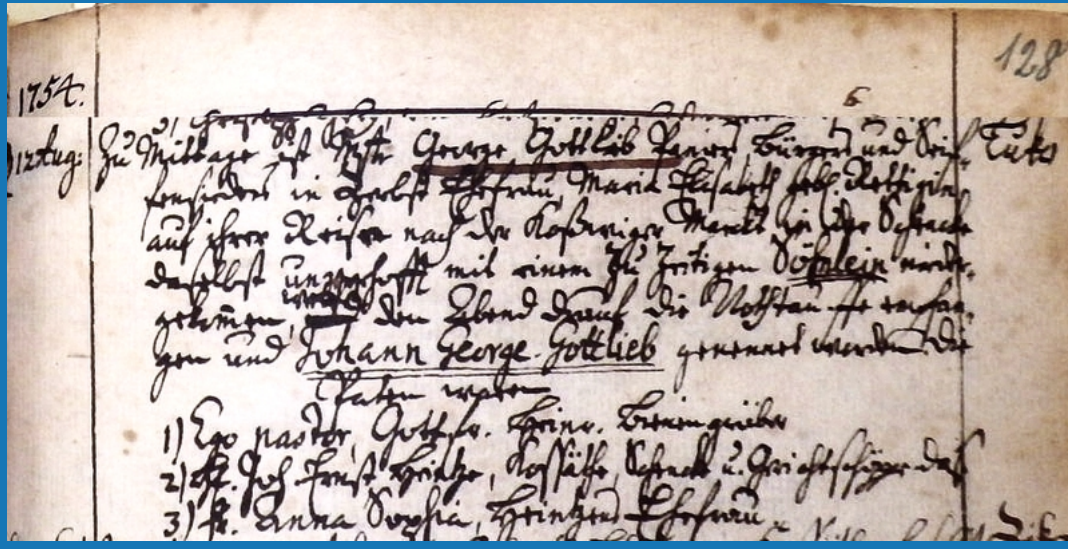 128
1754.
12 Aug: Zu Mittage ist Mstr. George Gottlieb Bürgers und Seif- Tuto
fensieders in Zerbst Ehefrau, Maria Elisabeth gebh.
auf ihrer Reise nach der Koßwiger Marckt in der Schencke
daselbst unverhofft mit einem zu zeitigen Söhnlein nieder-
gekommen, welches den Abend drauf die Nothtauffe empfan-
gen und Johann George Gottlieb genennet worden die
Paten waren
1) Ego pastor, Gottfr. Heinr.
2) Hr. Joh Ernst Heintze, Kossäthe, Schenck u. Gerichtschöppe das
3) Fr. Anna Sophia, Heintzens Ehefrau